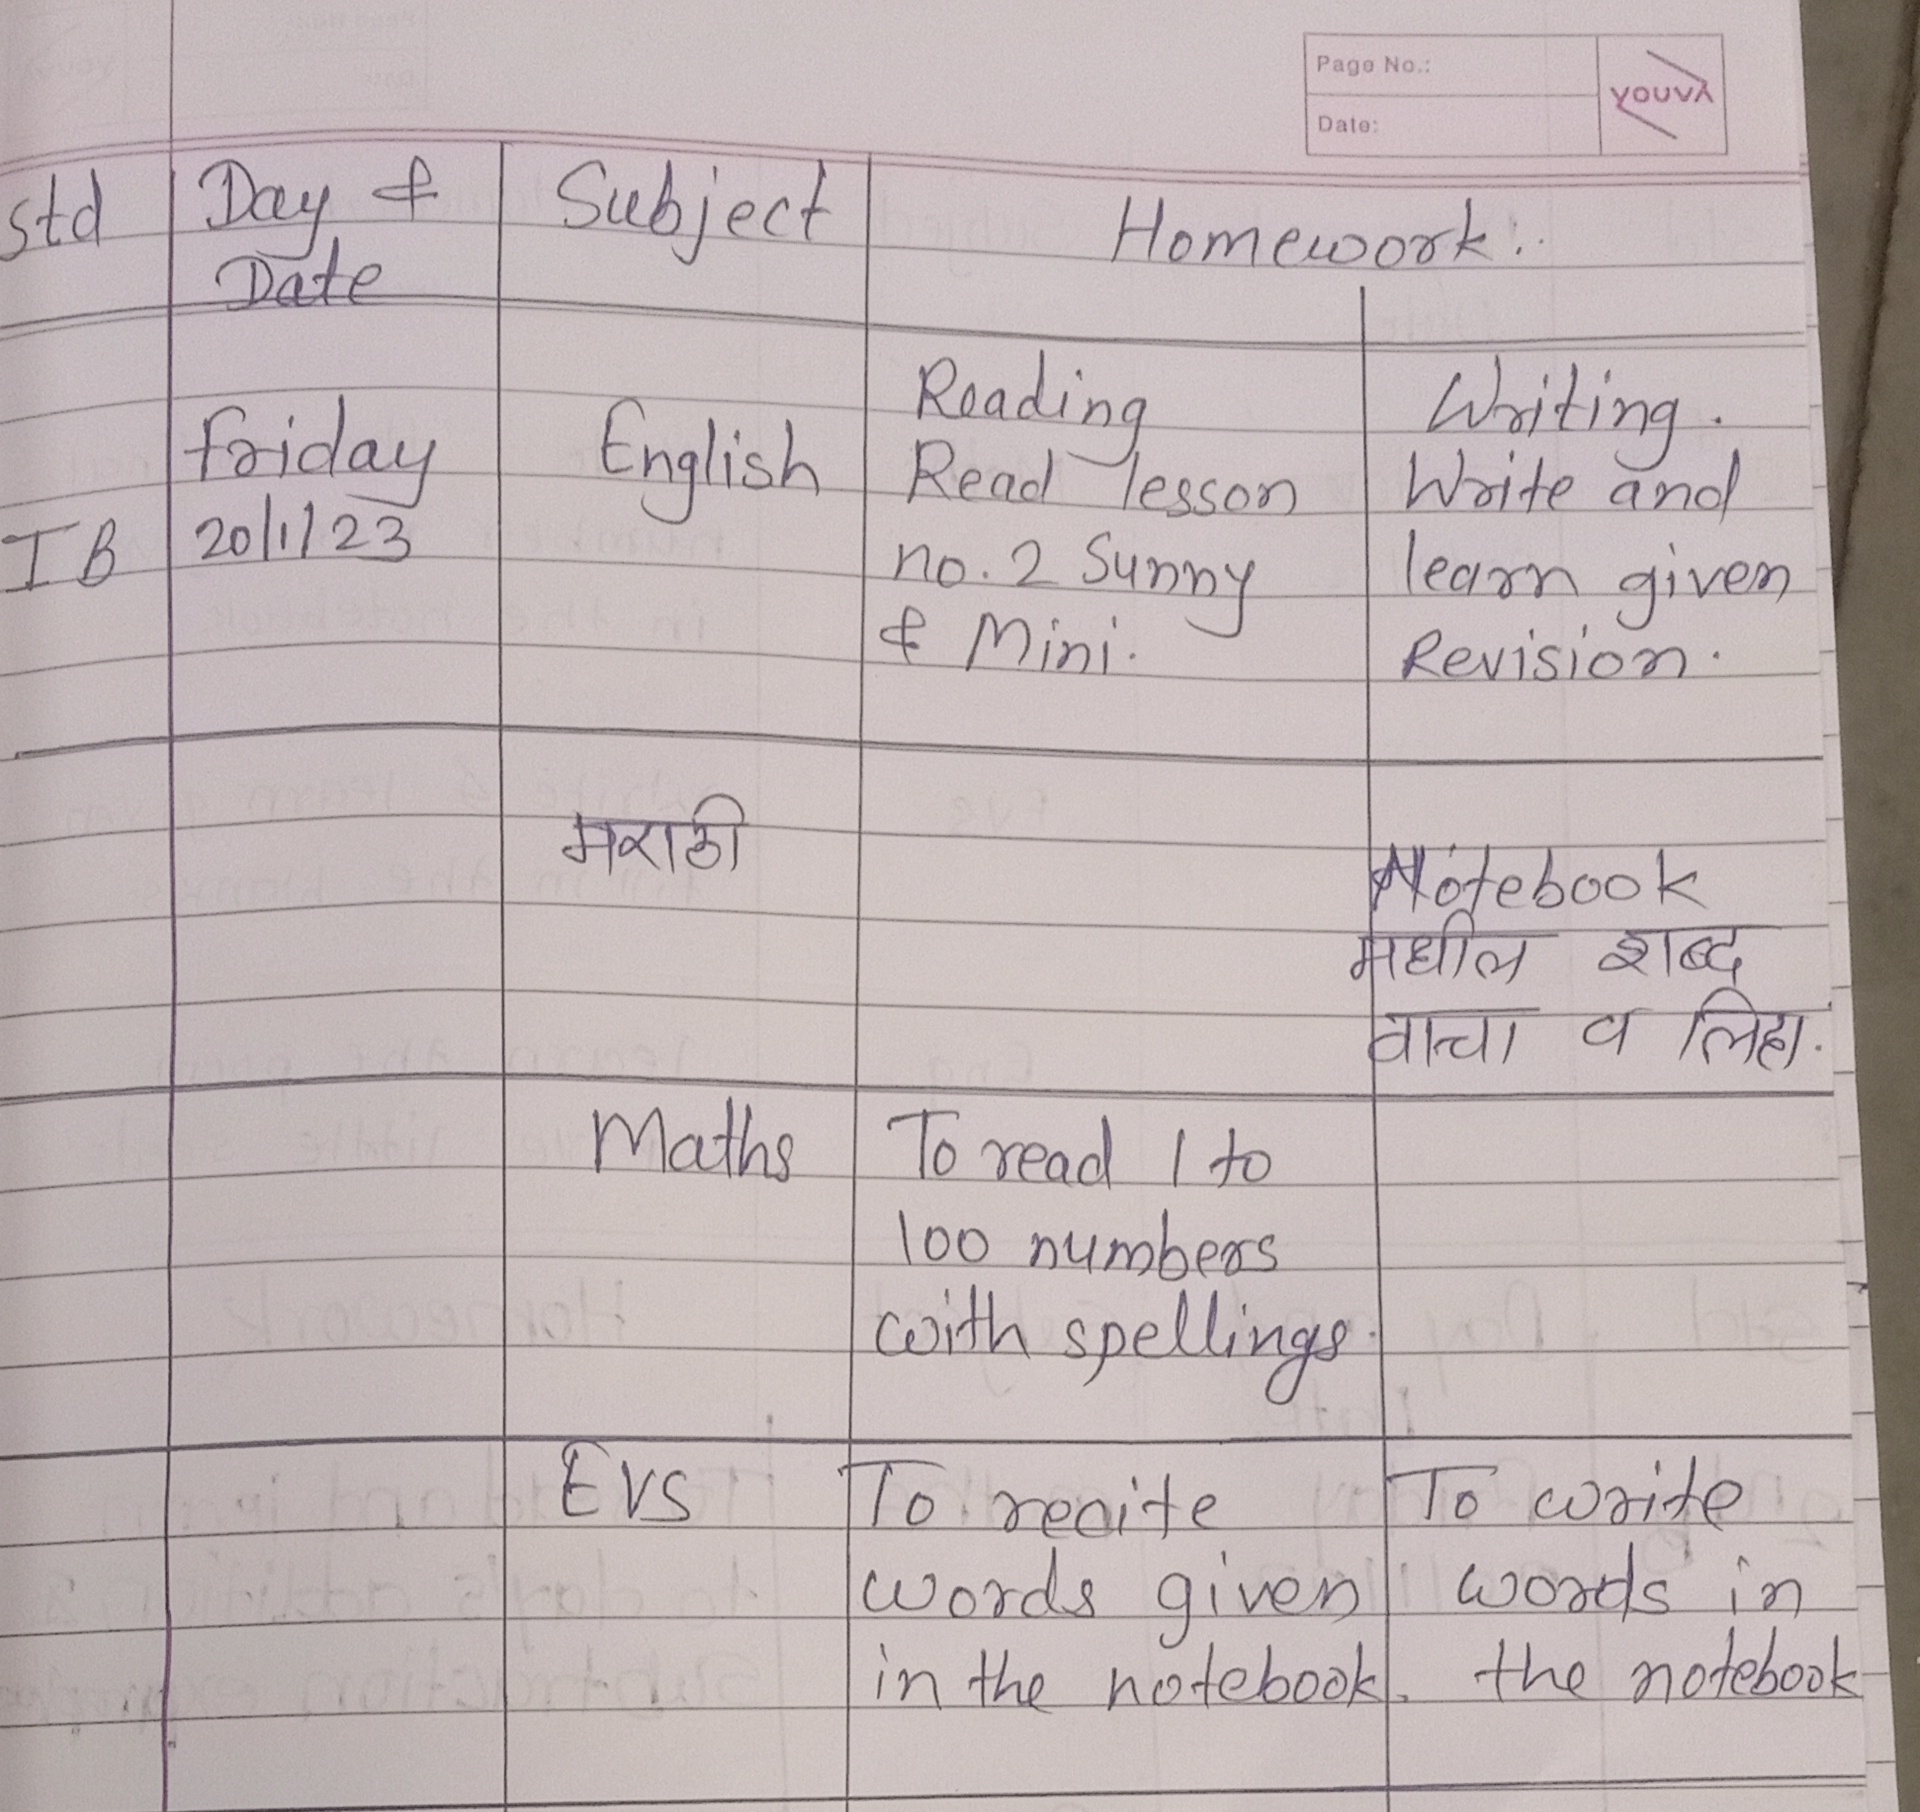 Page No.:
Date:
YOUVA
std Day & Subject Homework..
Date
Reading Writing.
friday English Read lesson Write and
I B 20/1/23 no. 2 Sunny learn given
& Mini. Revision.
मराठी
Notebook
मधील शब्द
वाचा व लिहा.
Maths To read 1 to
100 numbers
with spellings.
EVS To recite To write
words given words in
in the notebook. the notebook